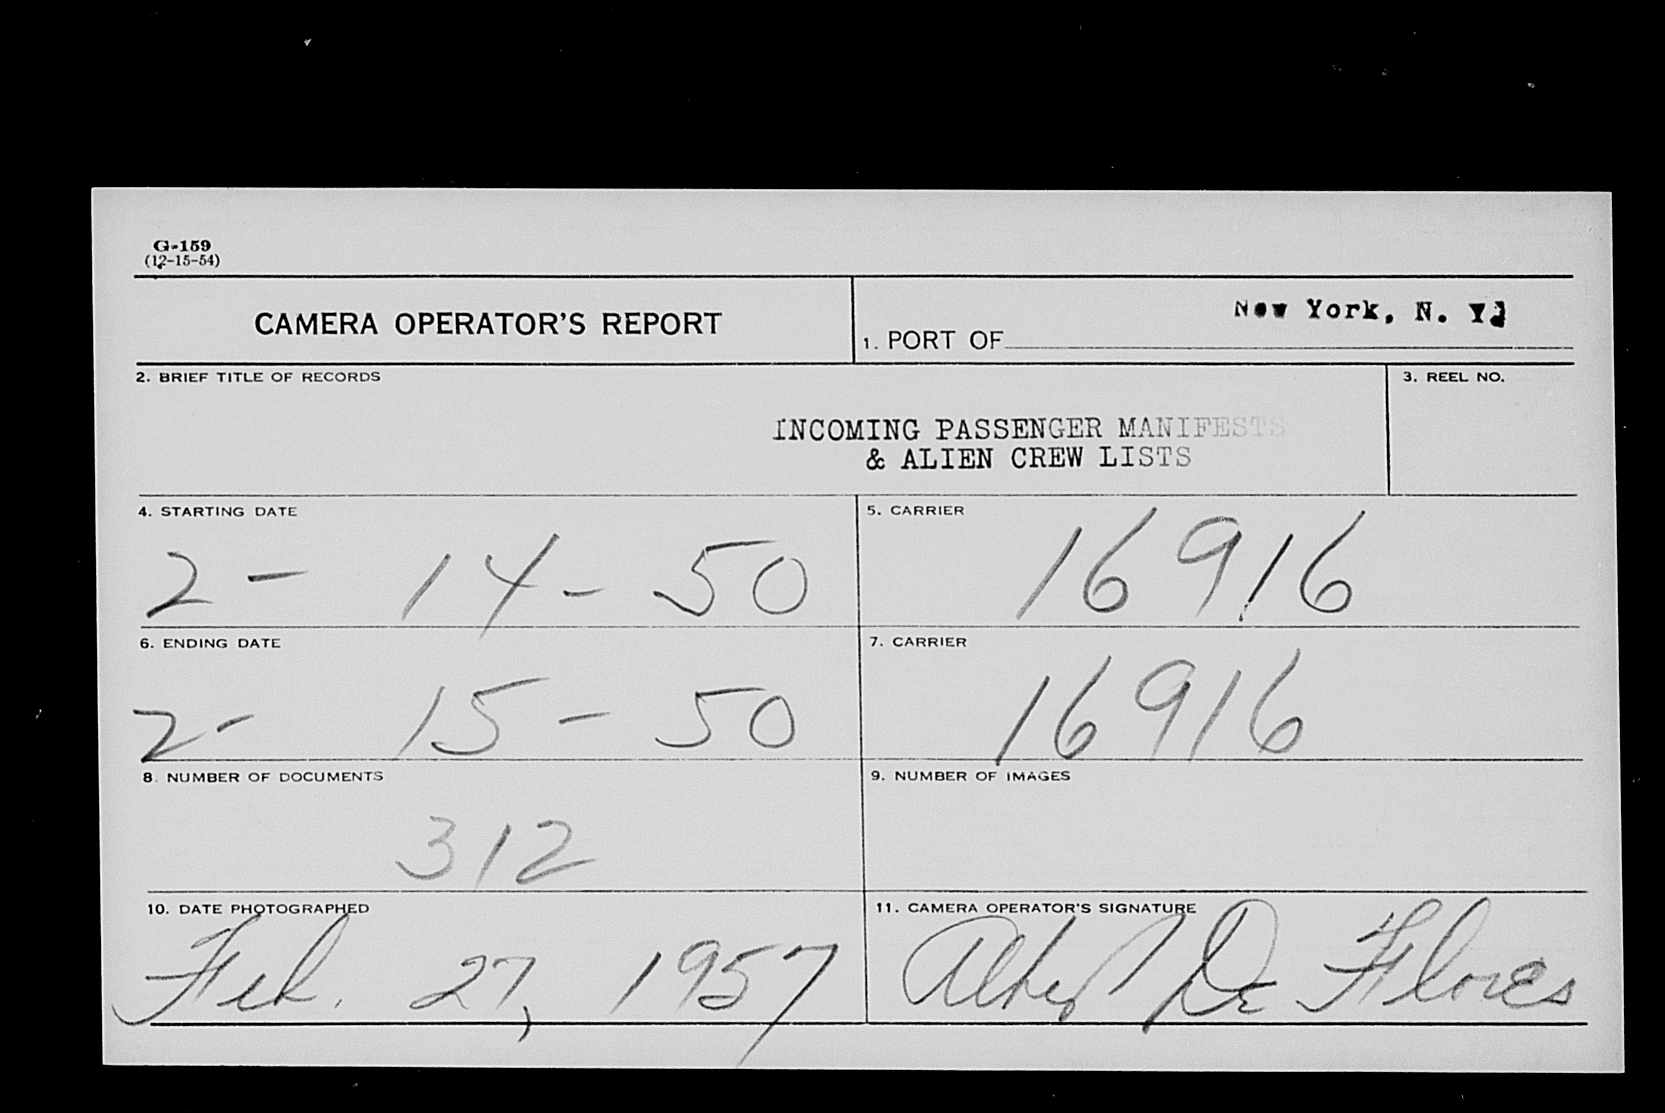 G-159
(12-15-54)
CAMERA OPERATOR'S REPORT
1. PORT OF New York, N. Y.
2. BRIEF TITLE OF RECORDS
3. REEL NO.
INCOMING PASSENGER MANIFESTS
& ALIEN CREW LISTS
4. STARTING DATE
5. CARRIER
2 - 14 - 50
16916
6. ENDING DATE
7. CARRIER
2 - 15 - 50
16916
8. NUMBER OF DOCUMENTS
9. NUMBER OF IMAGES
312
10. DATE PHOTOGRAPHED
11. CAMERA OPERATOR'S SIGNATURE
Feb. 27, 1957
Albert De Flores